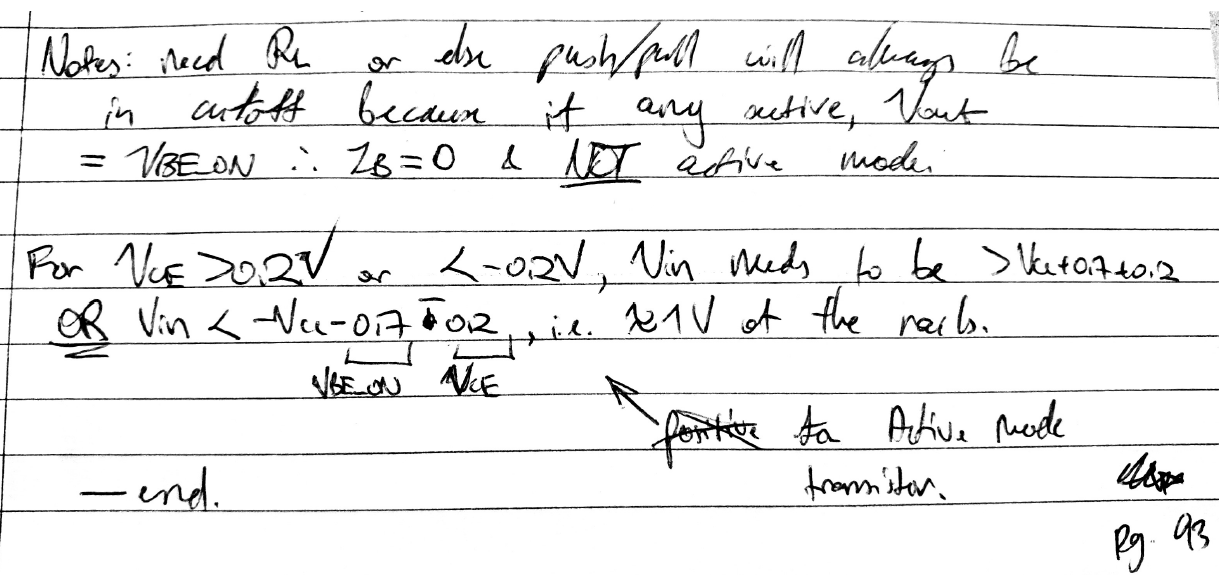 Notes: need RL or else push/pull will always be
in cutoff because if any active, Vout
= VBE_ON ∴ IB=0 & NOT active mode.
For VCE >0.2V or <-0.2V, Vin needs to be >Vcc+0.7+0.2
OR Vin < -Vcc-0.7-0.2, i.e. ≈1V of the rails.
VBE_ON VCE
positive for Active Mode
transistor.
— end.
Pg. 93